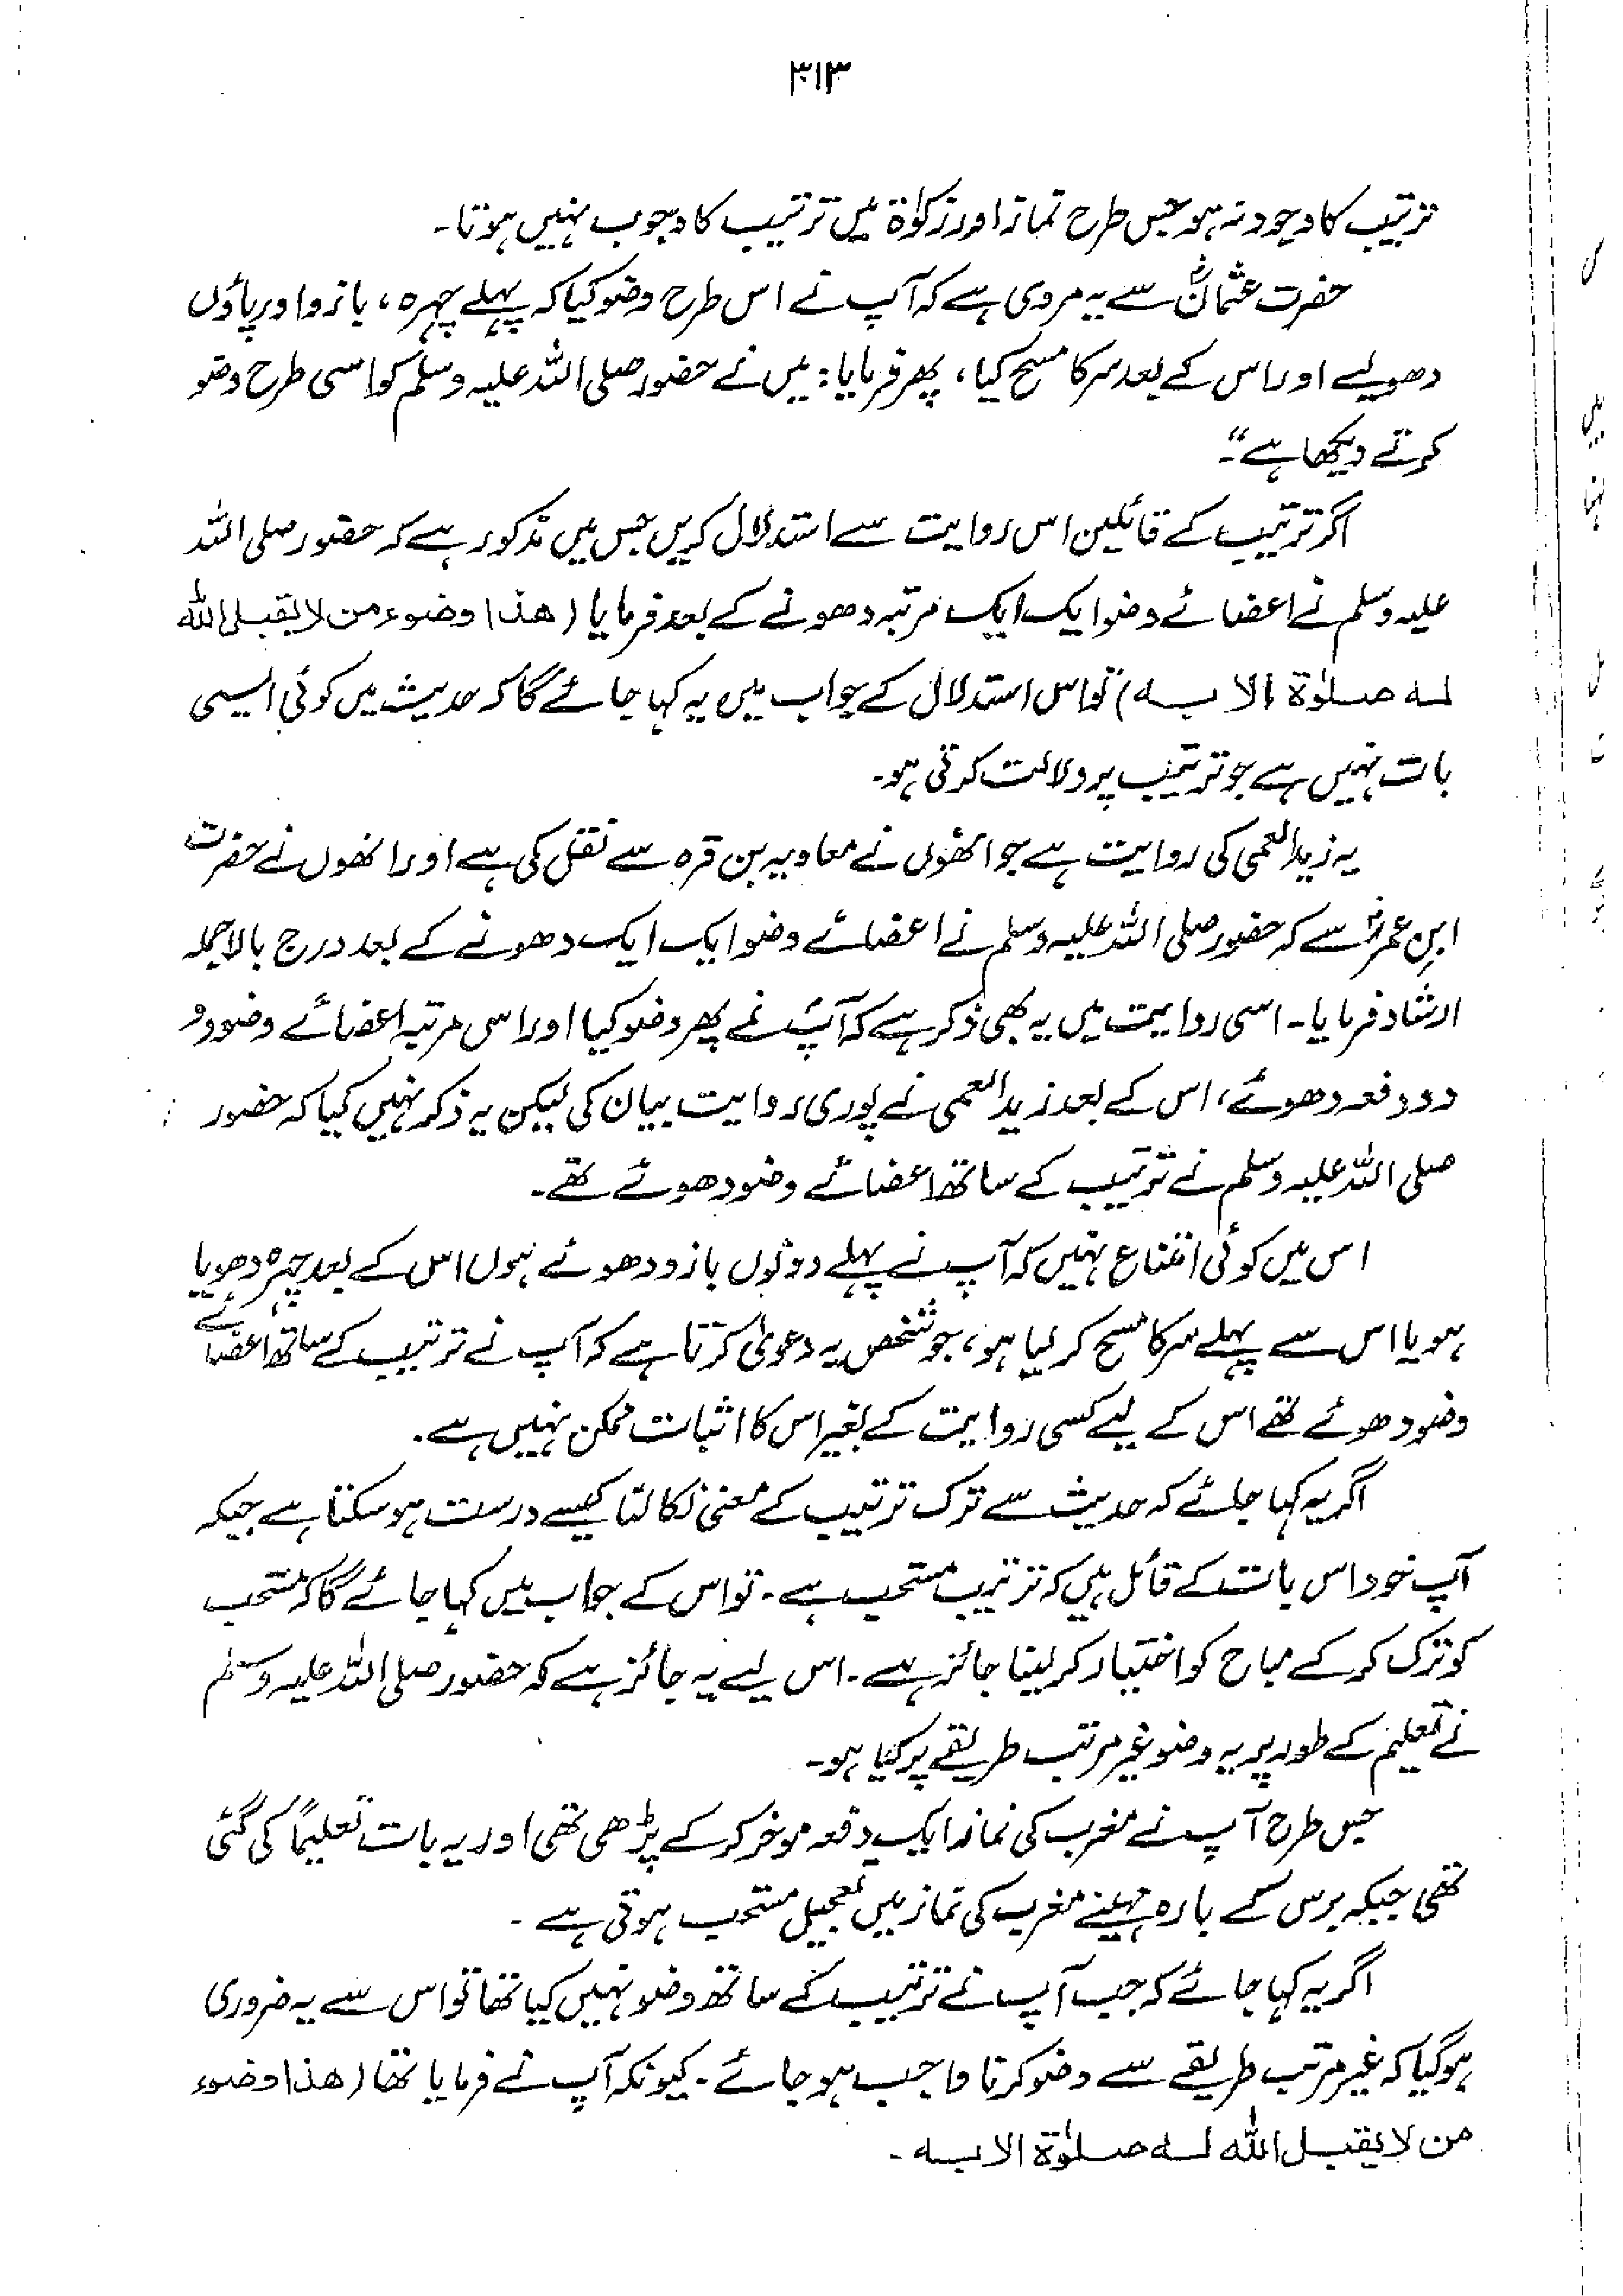 ۳۱۳
ترتیب کا وجود نہ ہو جس طرح نماز اور زکوٰۃ میں ترتیب کا وجوب نہیں ہوتا۔
حضرت عثمانؓ سے یہ مروی ہے کہ آپ نے اس طرح وضو کیا کہ پہلے چہرہ، بازو اور پاؤں
دھولیے اور اس کے بعد سر کا مسح کیا، پھر فرمایا: میں نے حضور صلی اللہ علیہ وسلم کو اسی طرح وضو
کرتے دیکھا ہے"۔
اگر ترتیب کے قائلین اس روایت سے استدلال کریں جس میں مذکور ہے کہ حضور صلی اللہ
علیہ وسلم نے اعضائے وضو ایک ایک مرتبہ دھونے کے بعد فرمایا (ھذا وضوء من لا یقبل اللہ
لہ صلوٰۃ الا بہ) تو اس استدلال کے جواب میں یہ کہا جائے گا کہ حدیث میں کوئی ایسی
بات نہیں ہے جو ترتیب پر دلالت کرتی ہو۔
یہ زید العمی کی روایت ہے جو انھوں نے معاویہ بن قرہ سے نقل کی ہے اور انھوں نے حضرت
ابنِ عمرؓ سے کہ حضور صلی اللہ علیہ وسلم نے اعضائے وضو ایک ایک دھونے کے بعد درج بالا جملہ
ارشاد فرمایا۔ اسی روایت میں یہ بھی ذکر ہے کہ آپؐ نے پھر وضو کیا اور اس مرتبہ اعضائے وضو دو
دو دفعہ دھوئے، اس کے بعد زید العمی نے پوری روایت بیان کی لیکن یہ ذکر نہیں کیا کہ حضور
صلی اللہ علیہ وسلم نے ترتیب کے ساتھ اعضائے وضو دھوئے تھے۔
اس میں کوئی امتناع نہیں کہ آپ نے پہلے دونوں بازو دھوئے ہوں اس کے بعد چہرہ دھویا
ہو یا اس سے پہلے سر کا مسح کر لیا ہو، جو شخص یہ دعویٰ کرتا ہے کہ آپ نے ترتیب کے ساتھ اعضائے
وضو دھوئے تھے اس کے لیے کسی روایت کے بغیر اس کا اثبات ممکن نہیں ہے۔
اگر یہ کہا جائے کہ حدیث سے ترک ترتیب کے معنی نکالنا کیسے درست ہو سکتا ہے جبکہ
آپ خود اس بات کے قائل ہیں کہ ترتیب مستحب ہے۔ تو اس کے جواب میں کہا جائے گا کہ مستحب
کو ترک کر کے مباح کو اختیار کر لینا جائز ہے۔ اس لیے یہ جائز ہے کہ حضور صلی اللہ علیہ وسلم
نے تعلیم کے طور پر یہ وضو غیر مرتب طریقے پر کیا ہو۔
جس طرح آپ نے مغرب کی نماز ایک دفعہ موخر کر کے پڑھی تھی اور یہ بات تعلیماً کی گئی
تھی جبکہ برس کے بارہ مہینے مغرب کی نماز میں تعجیل مستحب ہوتی ہے۔
اگر یہ کہا جائے کہ جب آپ نے ترتیب کے ساتھ وضو نہیں کیا تھا تو اس سے یہ ضروری
ہو گیا کہ غیر مرتب طریقے سے وضو کرنا واجب ہو جائے۔ کیونکہ آپ نے فرمایا تھا (ھذا وضوء
من لا یقبل اللہ لہ صلوٰۃ الا بہ۔